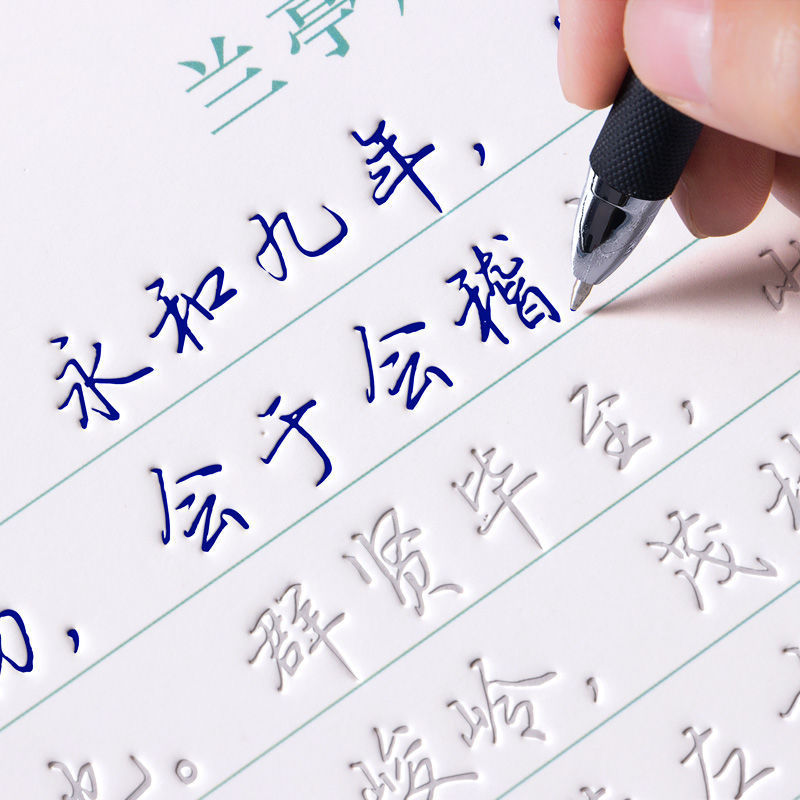 兰亭
永和九年，
，会于会稽
也。群贤毕至，
峻岭，茂
左